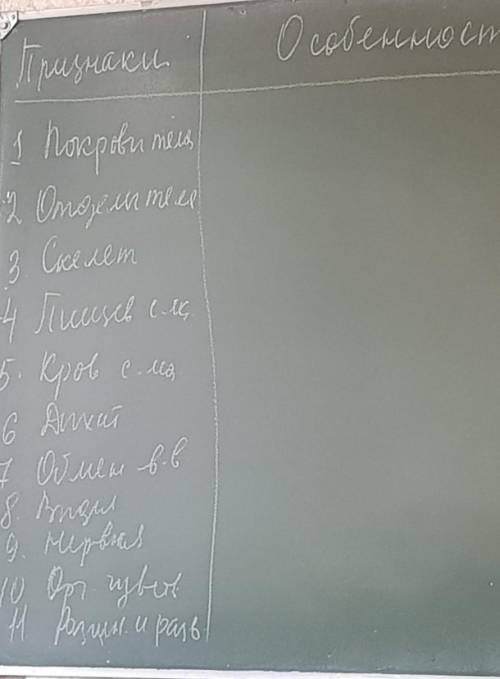 Признаки
Особенност
1 Покровы тела
2. Отделы тела
3. Скелет
4 Пищев с-ма
5. Кров с-ма
6 Дыхат
7 Обмен в-в
8. Выдел
9. Нервная
10 Орг. чувств
11 Размн. и разв